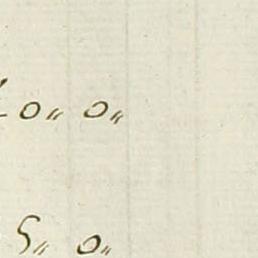 0〃 0〃
5〃 0〃